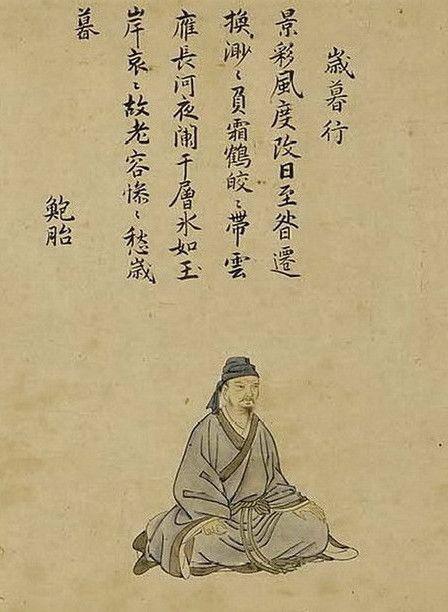 歳暮行
景彩風度改日至昝遷
換渺〻負霜鶴皎〻帶雲
雁長河夜闌干層氷如玉
岸哀〻故老容慘〻愁歳
暮
鮑胎